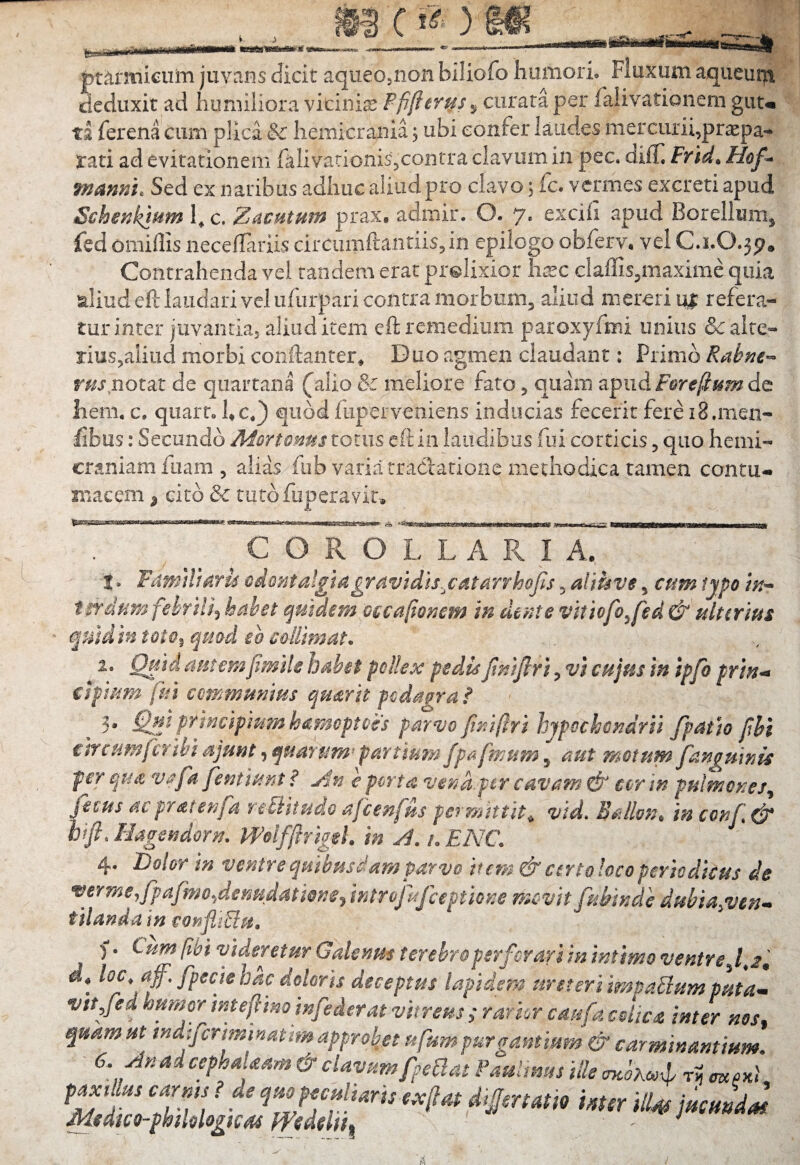 ( 16 )
ptarmicum juvans dicit aqueo,non biliofo humori. Fluxum aqueum
deduxit ad humiliora viciniæ Pfifterus, curatâ per falivationem gut-
tâ ferenâ cum plicâ & hemicraniâ; ubi confer laudes mercurii,præpa-
rati ad evitationem falivationis,contra clavum in pec. diff. Frid. Hof-
manni. Sed ex naribus adhuc aliud pro clavo; fc. vermes excreti apud
Schenkium l. c. Zacutum prax. admir. O. 7. excifi apud Borellum,
fed omiffis neceffariis circumftantiis, in epilogo obferv. vel C.1.O.39.
Contrahenda vel tandem erat prolixior hæc claffis,maximè quia
aliud eft laudari vel ufurpari contra morbum, aliud mereri ut refera-
tur inter juvantia, aliud item eft remedium paroxyfmi unius & alte-
rius,aliud morbi conftanter. Duo agmen claudant: Primò Rahne-
rus notat de quartanâ (alio & meliore fato, quàm apud Foreftum de
hem. c. quart. l. c.) quòd fuperveniens inducias fecerit ferè 18.men-
fibus: Secundò Mortonus totus eft in laudibus fui corticis, quo hemi-
craniam fuam, aliàs fub variâ tractatione methodica tamen contu-
macem, citò & tutò fuperavit.
COROLLARIA.
1. Familiaris odontalgia gravidis,catarrhofis, aliisve, cum typo in-
terdum febrili, habet quidem occafionem in dente vitiofo,fed & ulterius
quid in toto, quod eò collimat.
2. Quid autem fimile habet pollex pedis finiftri, vi cujus in ipfo prin-
cipium fui communius quærit podagra?
3. Qui principium hæmoptoës parvo finiftri hypochondrii fpatio fibi
circumfcribi ajunt, quarum partium fpafmum, aut motum fanguinis
per quæ vafa fentiunt? An è porta venâ per cavam & cor in pulmones,
fecus ac prætenfa rectitudo afcenfûs permittit. vid. Ballon. in conf. &
hift. Hagendorn. Wolffftrigel. in A. 1. ENC.
4. Dolor in ventre quibusdam parvo item & certo loco periodicus de
verme,fpafmo,denudatione, introfufceptione movit fubinde dubia,ven-
tilanda in conflictu.
5. Cum fibi videretur Galenus terebro perforari in intimo ventre,l.2.
d. loc. aff. fpecie hac doloris deceptus lapidem ureteri impactum puta-
vit,fed humor inteftino infederat vitreus; rarior caufa colica inter nos,
quàm ut indifcriminatim approbet ufum purgantium & carminantium.
6. An ad cephalæam & clavum fpectat Paulinus ille σκόλοψ τῇ σαρκὶ,
paxillus carnis? de quo peculiaris exftat differtatio inter illas jucundas
Medico-philologicas Wedelii.